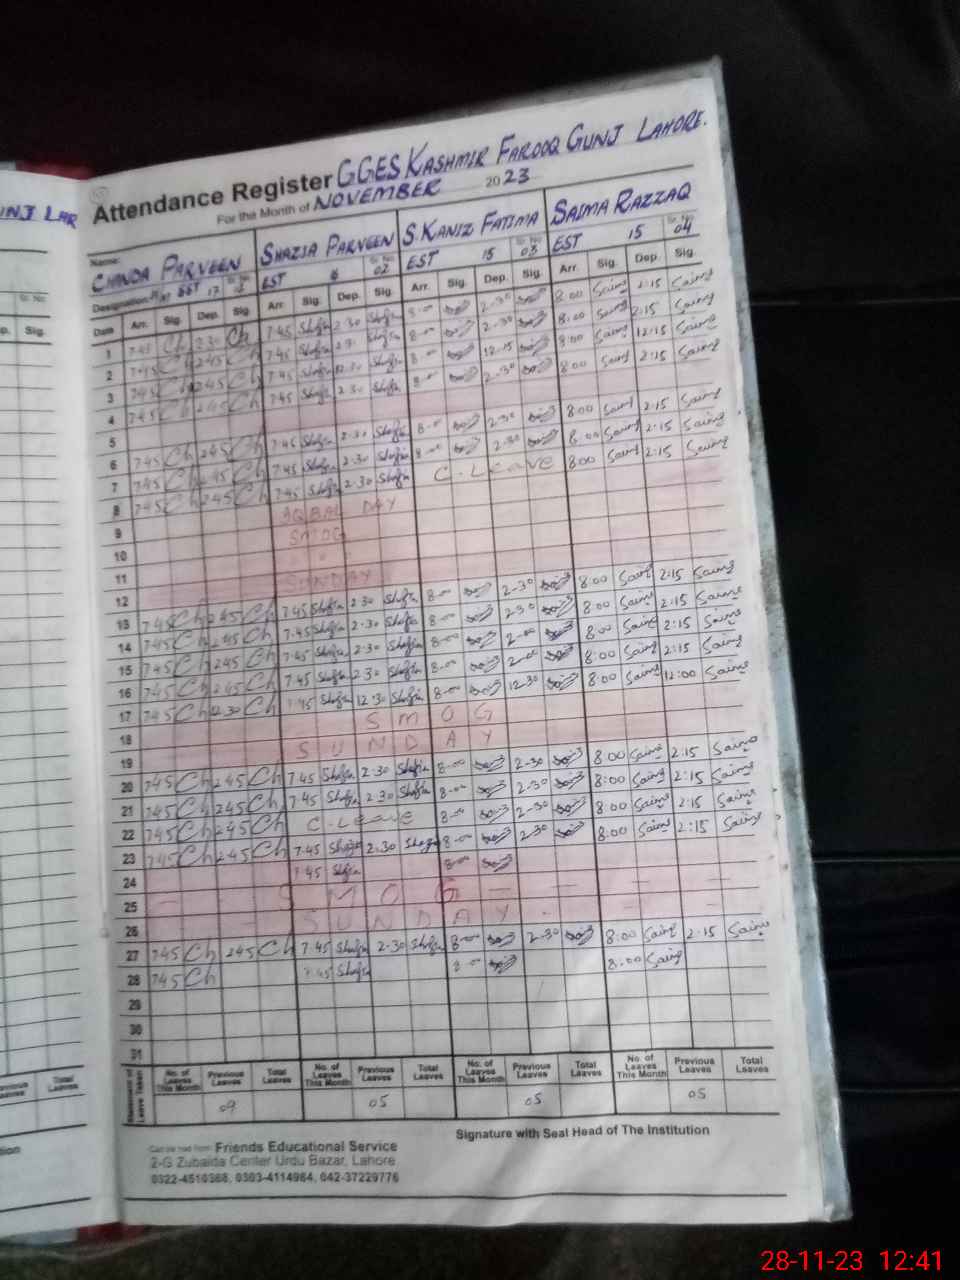 UNJ LAR
GGES KASHMIR FAROOQ GUNJ LAHORE.
Attendance Register
For the Month of NOVEMBER 2023
Name: CHANDA PARVEEN SHAZIA PARVEEN S. KANIZ FATIMA SAIMA RAZZAQ
Designation: SST 17 EST Sr. No. 02 EST 15 Sr. No. 03 EST 15 Sr. No. 04
Date Arr. Sig. Dep. Sig. Arr. Sig. Dep. Sig. Arr. Sig. Dep. Sig. Arr. Sig. Dep. Sig.
1 7:45 Ch 2:30 Ch 7:45 Shazia 2:30 Shazia 8:00 2:30 8:00 Saima 2:15 Saima
2 7:45 Ch 2:45 Ch 7:45 Shazia Shazia 8:00 2:30 8:00 Saima 2:15 Saima
3 7:45 Ch Ch 7:45 Shazia 12:30 Shazia 8:00 12:15 8:00 Saima 12:15 Saima
4 7:45 Ch 2:45 Ch 7:45 Shazia 2:30 Shazia 8:00 2:30 8:00 Saima 2:15 Saima
5
6 7:45 Ch 2:45 Ch 7:45 Shazia 2:30 Shazia 8:00 2:30 8:00 Saima 2:15 Saima
7 7:45 Ch 2:45 Ch 7:45 Shazia 2:30 Shazia 8:00 2:30 8:00 Saima 2:15 Saima
8 7:45 Ch 2:45 Ch 7:45 Shazia 2:30 Shazia C-Leave 8:00 Saima 2:15 Saima
9 IQBAL DAY
10 SMOG
11 "
12 SUNDAY
13 7:45 Ch 2:45 Ch 7:45 Shazia 2:30 Shazia 8:00 2:30 8:00 Saima 2:15 Saima
14 7:45 Ch 2:45 Ch 7:45 Shazia 2:30 Shazia 8:00 2:30 8:00 Saima 2:15 Saima
15 7:45 Ch 2:45 Ch 7:45 Shazia 2:30 Shazia 8:00 2:00 8:00 Saima 2:15 Saima
16 7:45 Ch 2:45 Ch 7:45 Shazia 2:30 Shazia 8:00 2:00 8:00 Saima 2:15 Saima
17 7:45 Ch 12:30 Ch 7:45 Shazia 12:30 Shazia 8:00 12:30 8:00 Saima 12:00 Saima
18 SMOG
19 SUNDAY
20 7:45 Ch 2:45 Ch 7:45 Shazia 2:30 Shazia 8:00 2:30 8:00 Saima 2:15 Saima
21 7:45 Ch 2:45 Ch 7:45 Shazia 2:30 Shazia 8:00 2:30 8:00 Saima 2:15 Saima
22 7:45 Ch 2:45 Ch C-Leave 8:00 2:30 8:00 Saima 2:15 Saima
23 7:45 Ch 2:45 Ch 7:45 Shazia 2:30 Shazia 8:00 2:30 8:00 Saima 2:15 Saima
24 7:45 Shazia 8:00
25 SMOG
26 SUNDAY
27 7:45 Ch 2:45 Ch 7:45 Shazia 2:30 Shazia 8:00 2:30 8:00 Saima 2:15 Saima
28 7:45 Ch 7:45 Shazia 8:00 8:00 Saima
29
30
31
Statement of Leave Taken No. of Leaves This Month Previous Leaves Total Leaves No. of Leaves This Month Previous Leaves Total Leaves No. of Leaves This Month Previous Leaves Total Leaves No. of Leaves This Month Previous Leaves Total Leaves
09 05 05 05
Signature with Seal Head of The Institution
Can be had from: Friends Educational Service
2-G Zubaida Center Urdu Bazar, Lahore
0322-4510368, 0303-4114984, 042-37229776
28-11-23 12:41